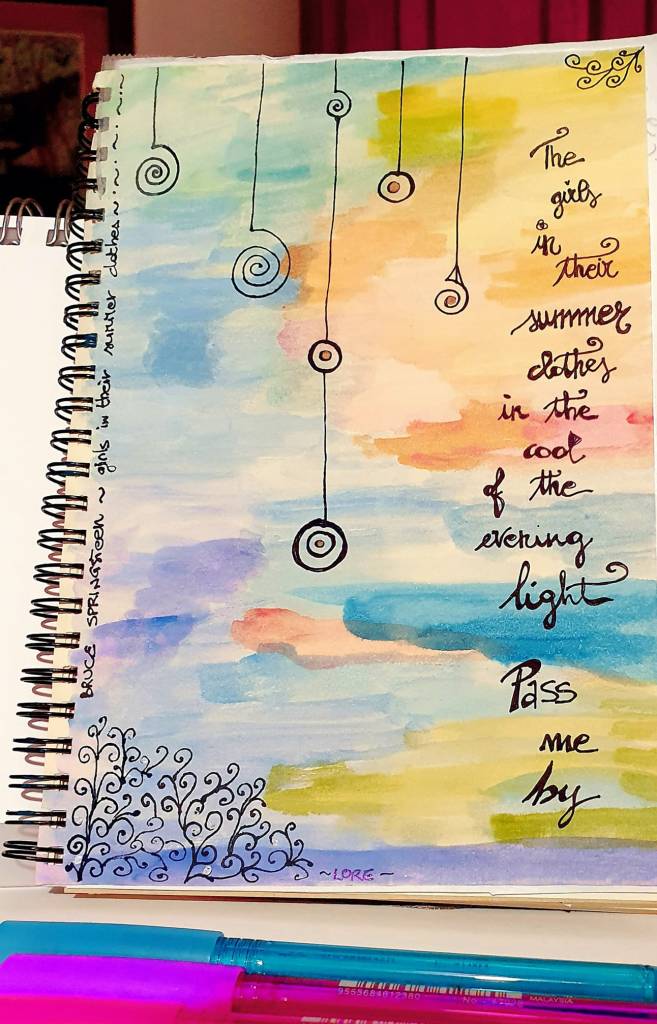 The
girls
in
their
summer
clothes
in the
cool
of the
evening
light
Pass
me
by
BRUCE SPRINGSTEEN ~ girls in their summer clothes
~LORE~
9555684612380
MALAYSIA